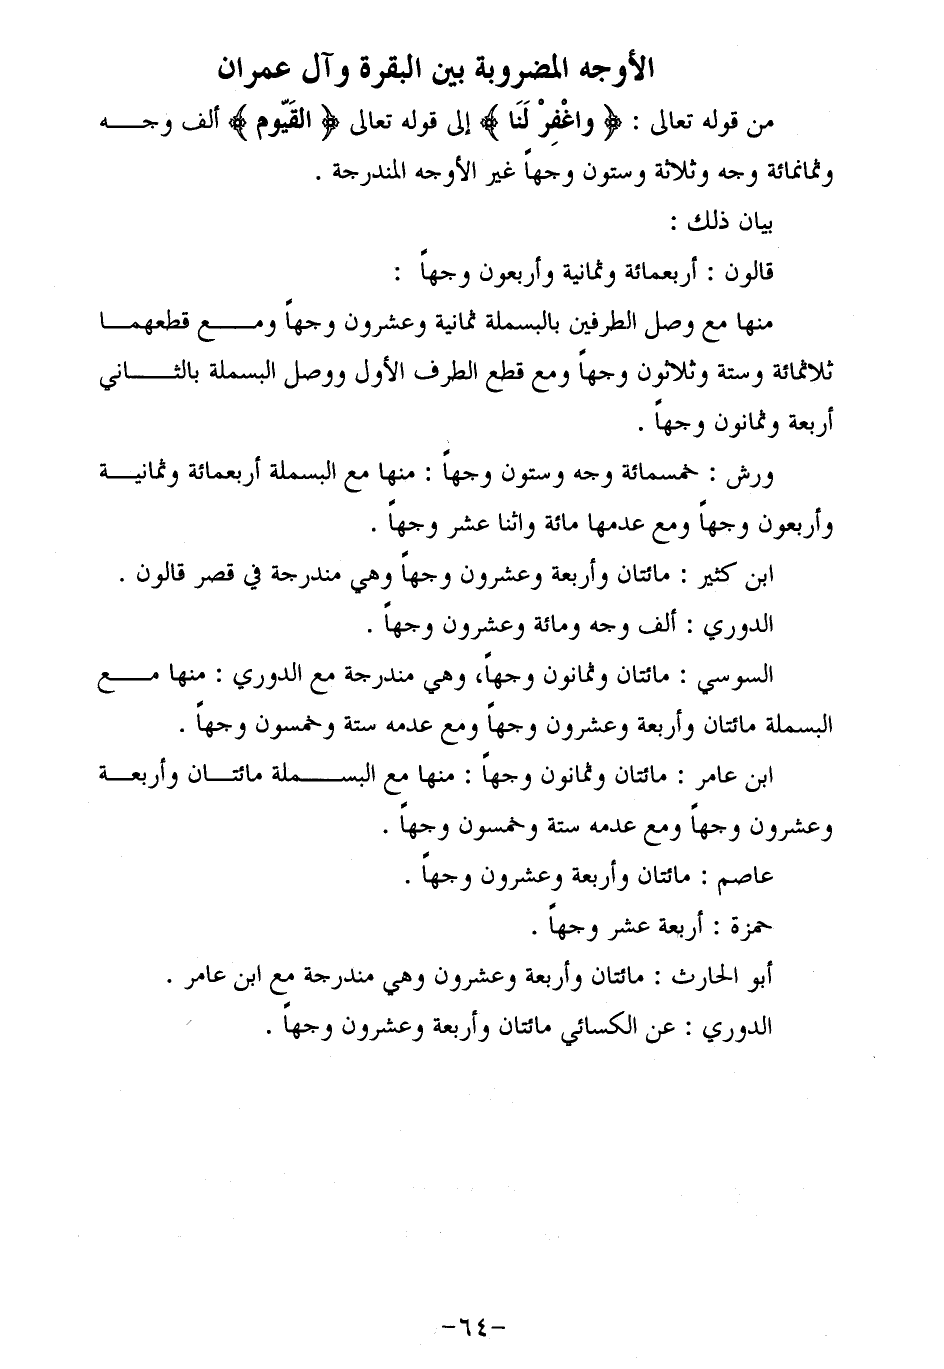 الأوجه المضروبة بين البقرة وآل عمران
من قوله تعالى : ﴿ واغْفِرْ لَنَا ﴾ إلى قوله تعالى ﴿ القَيّوم ﴾ ألف وجـــه
وثمانمائة وجه وثلاثة وستون وجهاً غير الأوجه المندرجة .
بيان ذلك :
قالون : أربعمائة وثمانية وأربعون وجهاً :
منها مع وصل الطرفين بالبسملة ثمانية وعشرون وجهاً ومـــع قطعهمــا
ثلاثمائة وستة وثلاثون وجهاً ومع قطع الطرف الأول ووصل البسملة بالثــــاني
أربعة وثمانون وجهاً .
ورش : خمسمائة وجه وستون وجهاً : منها مع البسملة أربعمائة وثمانيــة
وأربعون وجهاً ومع عدمها مائة واثنا عشر وجهاً .
ابن كثير : مائتان وأربعة وعشرون وجهاً وهي مندرجة في قصر قالون .
الدوري : ألف وجه ومائة وعشرون وجهاً .
السوسي : مائتان وثمانون وجهاً، وهي مندرجة مع الدوري : منها مـــع
البسملة مائتان وأربعة وعشرون وجهاً ومع عدمه ستة وخمسون وجهاً .
ابن عامر : مائتان وثمانون وجهاً : منها مع البســـملة مائتــان وأربعــة
وعشرون وجهاً ومع عدمه ستة وخمسون وجهاً .
عاصم : مائتان وأربعة وعشرون وجهاً .
حمزة : أربعة عشر وجهاً .
أبو الحارث : مائتان وأربعة وعشرون وهي مندرجة مع ابن عامر .
الدوري : عن الكسائي مائتان وأربعة وعشرون وجهاً .
-٦٤-